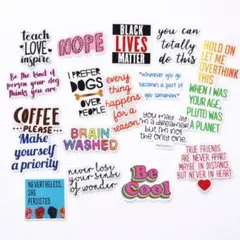 teach
LOVE
inspire
NOPE
BLACK
LIVES
MATTER
you can
totally
do this
HOLD ON
LET ME
OVERTHINK
THIS
Be the kind of
person your dog
thinks you are
I
PREFER
DOGS
OVER
PEOPLE
every
thing
happens
for a
reason
wherever you go
becomes a part of
you somehow
WHEN I WAS
YOUR AGE,
PLUTO WAS
A PLANET
COFFEE
PLEASE
Make
yourself
a priority
BRAIN
WASHED
you may say
I'm a dreamer
but I'm not
the only one
NEVERTHELESS,
SHE
PERSISTED
never lose
your sense
of wonder
Be
Cool
TRUE FRIENDS
ARE NEVER APART
MAYBE IN DISTANCE
BUT NEVER IN HEART